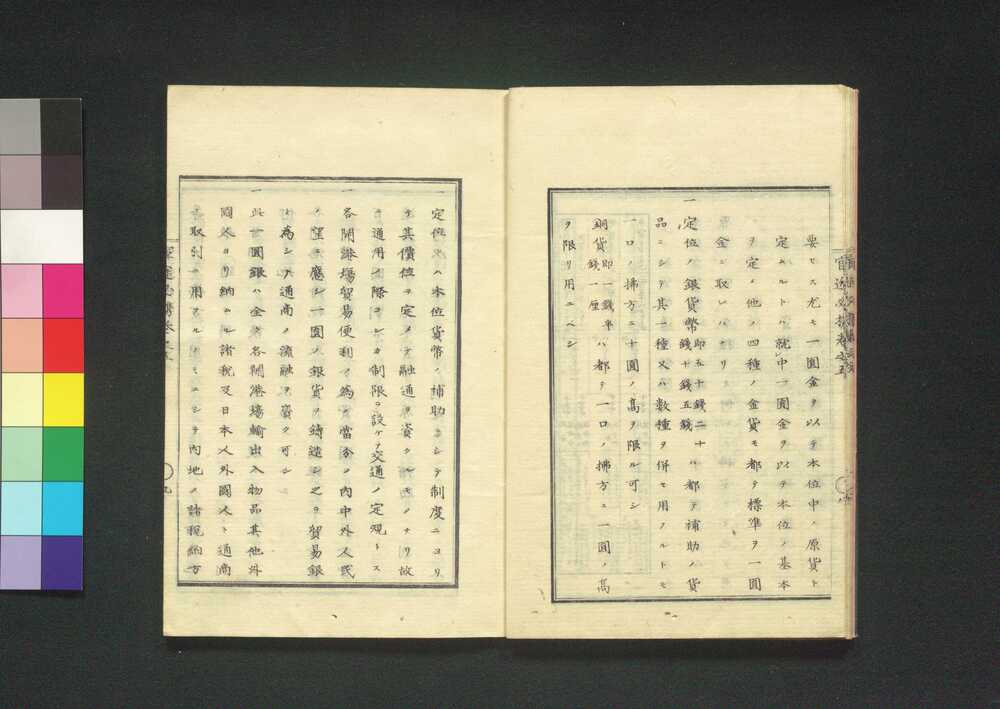 要セス尤モ一圓金ヲ以テ本位中ノ原貨ト
定ムルトハ就中一圓金ヲ以テ本位ノ基本
ヲ定メ他ノ四種ノ金貨モ都テ標準ヲ一圓
金ニ取レハナリ
一 定位ノ銀貨幣即五十錢二十錢十錢五錢ハ都テ補助ノ貨
品ニシテ其一種又ハ數種ヲ併セ用フルトモ
一口ノ拂方ニ十圓ノ高ヲ限ル可シ
銅貨即一錢半錢一厘ハ都テ一口ノ拂方ニ一圓ノ高
ヲ限リ用ユベシ
一 定位トハ本位貨幣ノ補助ニシテ制度ニヨリ
テ其價位ヲ定メテ融通ヲ資クルモノナリ故
ニ通用ノ際コレカ制限ヲ設ケテ交通ノ定規トス
一 各開港場貿易便利ノ爲メ當分ノ內中外人民
ノ望ニ應シ一圓ノ銀貨ヲ鑄造シ之ヲ貿易銀
ト爲シテ通商ノ流融ヲ資ク可シ
一 此一圓銀ハ全ク各開港場輸出入物品其他外
國人ヨリ納ムル諸稅及日本人外國人ト通商
ノ取引ニ用フルノミニシテ內地ノ諸稅納方